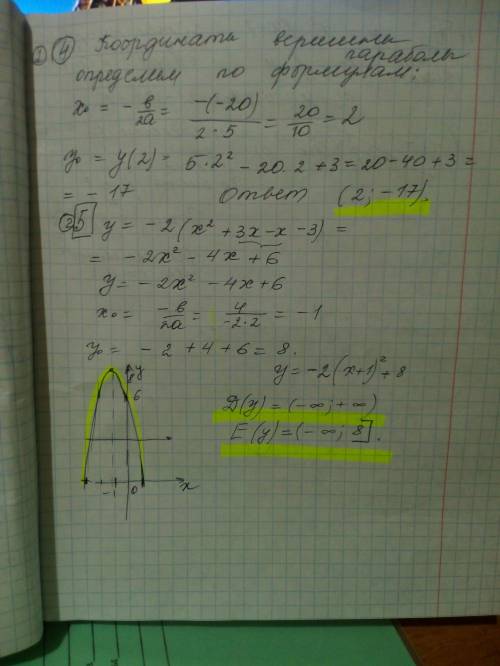 2) ④ Координаты вершины
параболы
определим по формулам:
x₀ = - в/2а = -(-20)/2·5 = 20/10 = 2
y₀ = y(2) = 5·2² - 20·2 + 3 = 20 - 40 + 3 =
= - 17 Ответ (2; -17).
5 y = -2(x² + 3x - x - 3) =
= - 2x² - 4x + 6
y = - 2x² - 4x + 6
x₀ = -в/2а = 4/-2·2 = -1
y₀ = - 2 + 4 + 6 = 8.
y = -2(x+1)² + 8
D(y) = (-∞; +∞)
E(y) = (-∞; 8].
y
8
6
-1 0 x